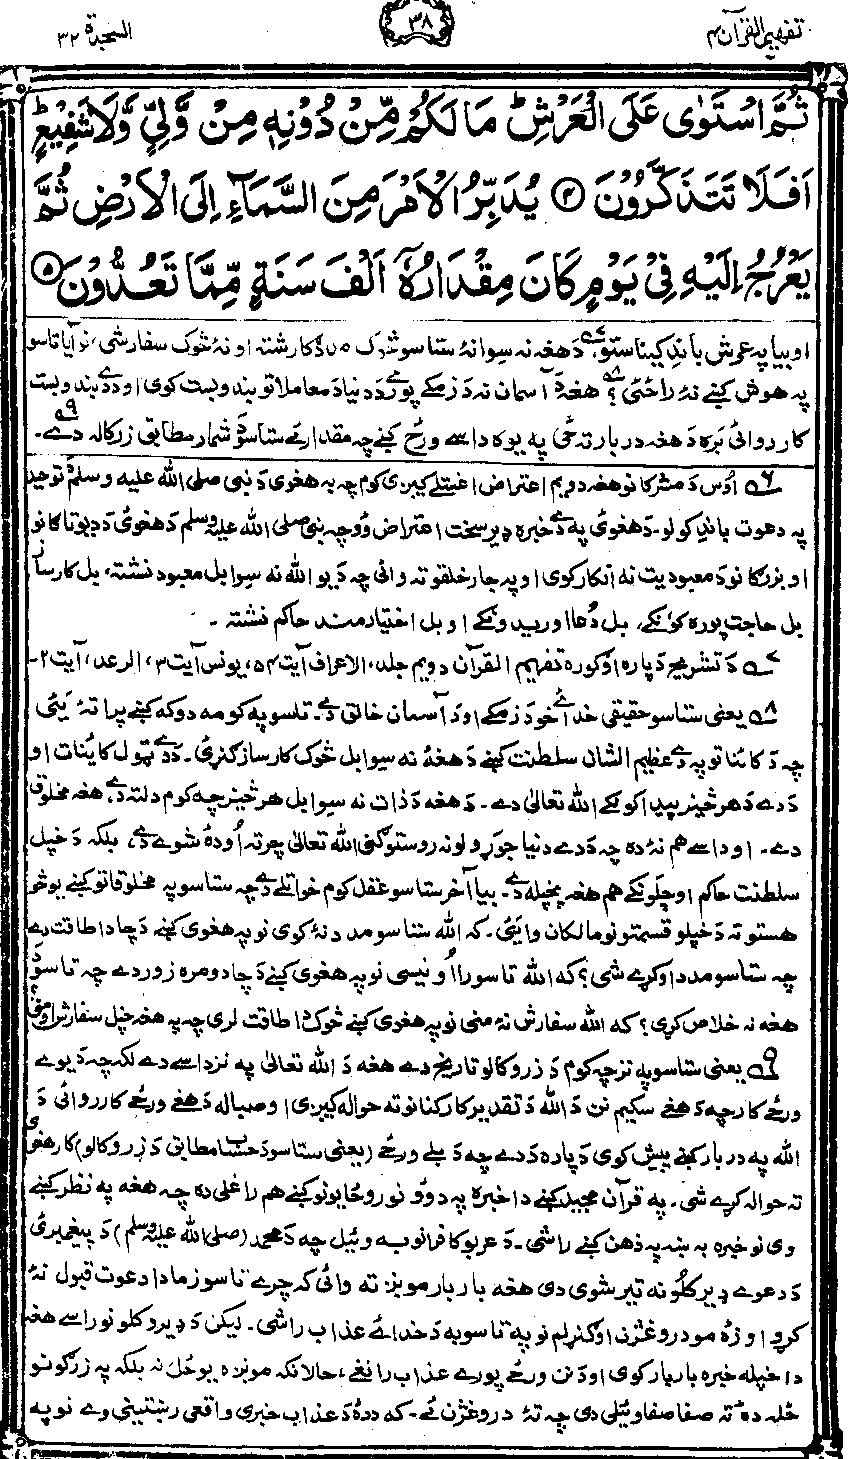 تفهيم القرآن ۴
۳۸
السجدة ۳۲
ثُمَّ اسْتَوٰى عَلَى الْعَرْشِ ؕ مَا لَكُمْ مِّنْ دُوْنِهٖ مِنْ وَّلِيٍّ وَّلَا شَفِيْعٍ ؕ
اَفَلَا تَتَذَكَّرُوْنَ ﴿۴﴾ يُدَبِّرُ الْاَمْرَ مِنَ السَّمَآءِ اِلَى الْاَرْضِ ثُمَّ
يَعْرُجُ اِلَيْهِ فِيْ يَوْمٍ كَانَ مِقْدَارُهٗۤ اَلْفَ سَنَةٍ مِّمَّا تَعُدُّوْنَ ﴿۵﴾
او بيا په عرش باندِ كيناستو ۷ دَ هغه نه سِوا نهٔ ستاسو څوک مددګار شته او نهٔ څوک سفارشى، نو آيا تاسو
په هوش كښے نهٔ راځئى؟ ۸ هغه دَ آسمان نه دَ زمكے پورے دَ دنيا دَ معاملاتو بندوبست كوى او دَ دے بندوبست
كارروائى بَره دَ هغه دربار ته خى په يوه داسے ورځ كښے چه مقدار ئے ستاسو دَ شمار مطابق زر كاله دے۔ ۹
۶ اوس دَ مشركانو هغه دويم اعتراض اخستلے كيږى كوم چه به هغوى دَ نبى صلى الله عليه وسلم دَ توحيد
په دعوت باندِ كولو۔ دَ هغوى په دے خبره ډير سخت اعتراض وُو چه نبى صلى الله عليه وسلم دَ هغوى دَ ديوتاګانو
او بزرګانو دَ معبوديت نه انكار كوى او په جار خلقو ته وائى چه دَ يو الله نه سوا بل معبود نشته، بل كارساز
بل حاجت پوره كوُنكے، بل دُعا اوريدونكے او بل اختيارمند حاكم نشته۔
۷ دَ تشريح دَ پاره اوګوره تفهيم القرآن دويم جلد، الاعراف آيت ۵۴، يونس آيت ۳، الرعد، آيت ۲۔
۸ يعنى ستاسو حقيقى خدائے خو دَ زمكے او دَ آسمان خالق دے۔ تاسو په كومه دوكه كښے پراتهٔ يئى
چه دَ كائناتو په دے عظيم الشان سلطنت كښے دَ هغهٔ نه سِوا بل څوک كارساز ګنړئ۔ دَ دے ټول كائنات او
دَ دے دَ هر څيز پيدا كونكے الله تعالىٰ دے۔ دَ هغه دَ ذات نه سِوا بل هر څيز چه كوم دلته دے، هغه مخلوق
دے۔ او داسے هم نهٔ ده چه دَ دے دنيا جوړولو نه روستو ګنى الله تعالىٰ چرته اُودهٔ شوے دے، بلكه دَ خپل
سلطنت حاكم او چلونكے هم هغه پخپله دے۔ بيا آخر ستاسو عقل كوم خوا تلے دے چه ستاسو په مخلوقاتو كښے يو څو
هستو ته دَ خپلو قسمتونو مالكان وايئى۔ كه الله ستاسو مدد نهٔ كوى نو په هغوى كښے دَ چا دا طاقت دے
چه ستاسو مدد اوكړے شى؟ كه الله تاسو را اُونيسى نو په هغوى كښے دَ چا دومره زور دے چه تاسو دَ
هغه نه خلاص كړى؟ كه الله سفارش نهٔ منى نو په هغوى كښے څوک دا طاقت لرى چه په هغه خپل سفارش اومنى؟
۹ يعنى ستاسو په نزد چه كوم دَ زرو كالو تاريخ دے هغه دَ الله تعالىٰ په نزد داسے دے لكه چه دَ يوے
ورځے كار چه دَ هغے سكيم نن دَ الله دَ تقدير كاركنانو ته حواله كيږى او صبا له دَ هغے ورځے كارروائى دَ
الله په دربار كښے پيش كوى دَ پاره دَ دے چه دَ بلے ورځے (يعنى ستاسو دَ حساب مطابق دَ زرو كالو) كار هغوى
ته حواله كړے شى۔ په قرآن مجيد كښے دا خبره په دوو نورو ځايونو كښے هم راغلى ده چه هغه په نظر كښے
وى نو خبره به ښه په ذهن كښے راشى۔ دَ عربو كافرانو به وئيل چه دَ محمد (صلى الله عليه وسلم) دَ پيغمبرئ
دَ دعوے ډير كلونه تير شوى دى هغه بار بار مونږ ته وائى كه چرے تاسو زما دا دعوت قبول نهٔ
كړو او زهٔ مو دروغژن اوګنړلم نو په تاسو به دَ خدائے عذاب راشى۔ ليكن دَ ډيرو كلونو راسے هغه
دا خپله خبره بار بار كوى او دَ نن ورځے پورے عذاب رانغے، حالانكه مونږه يو ځل نه بلكه په زرګونو
ځله دهٔ ته صفا صفا وئيلى دى چه تهٔ دروغژن ئے۔ كه دَ دهٔ دَ عذاب خبرى واقعى رښتينى وے نو په